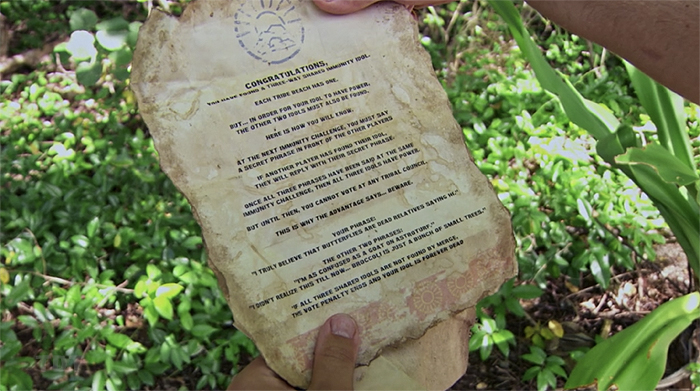 CONGRATULATIONS,
YOU HAVE FOUND A THREE-WAY SHARED IMMUNITY IDOL.
EACH TRIBE BEACH HAS ONE.
BUT... IN ORDER FOR YOUR IDOL TO HAVE POWER,
THE OTHER TWO IDOLS MUST ALSO BE FOUND.
HERE IS HOW YOU WILL KNOW.
AT THE NEXT IMMUNITY CHALLENGE, YOU MUST SAY
A SECRET PHRASE IN FRONT OF THE OTHER PLAYERS.
IF ANOTHER PLAYER HAS FOUND THEIR IDOL...
THEY WILL REPLY WITH THEIR SECRET PHRASE.
ONCE ALL THREE PHRASES HAVE BEEN SAID AT THE SAME
IMMUNITY CHALLENGE, THEN ALL THREE IDOLS HAVE POWER.
BUT UNTIL THEN, YOU CANNOT VOTE AT ANY TRIBAL COUNCIL.
THIS IS WHY THE ADVANTAGE SAYS... BEWARE.
YOUR PHRASE:
"I TRULY BELIEVE THAT BUTTERFLIES ARE DEAD RELATIVES SAYING HI."
THE OTHER TWO PHRASES:
"I'M AS CONFUSED AS A GOAT ON ASTROTURF."
"I DIDN'T REALIZE THIS TILL NOW... BROCCOLI IS JUST A BUNCH OF SMALL TREES."
*IF ALL THREE SHARED IDOLS ARE NOT FOUND BY MERGE,
THE VOTE PENALTY ENDS AND YOUR IDOL IS FOREVER DEAD